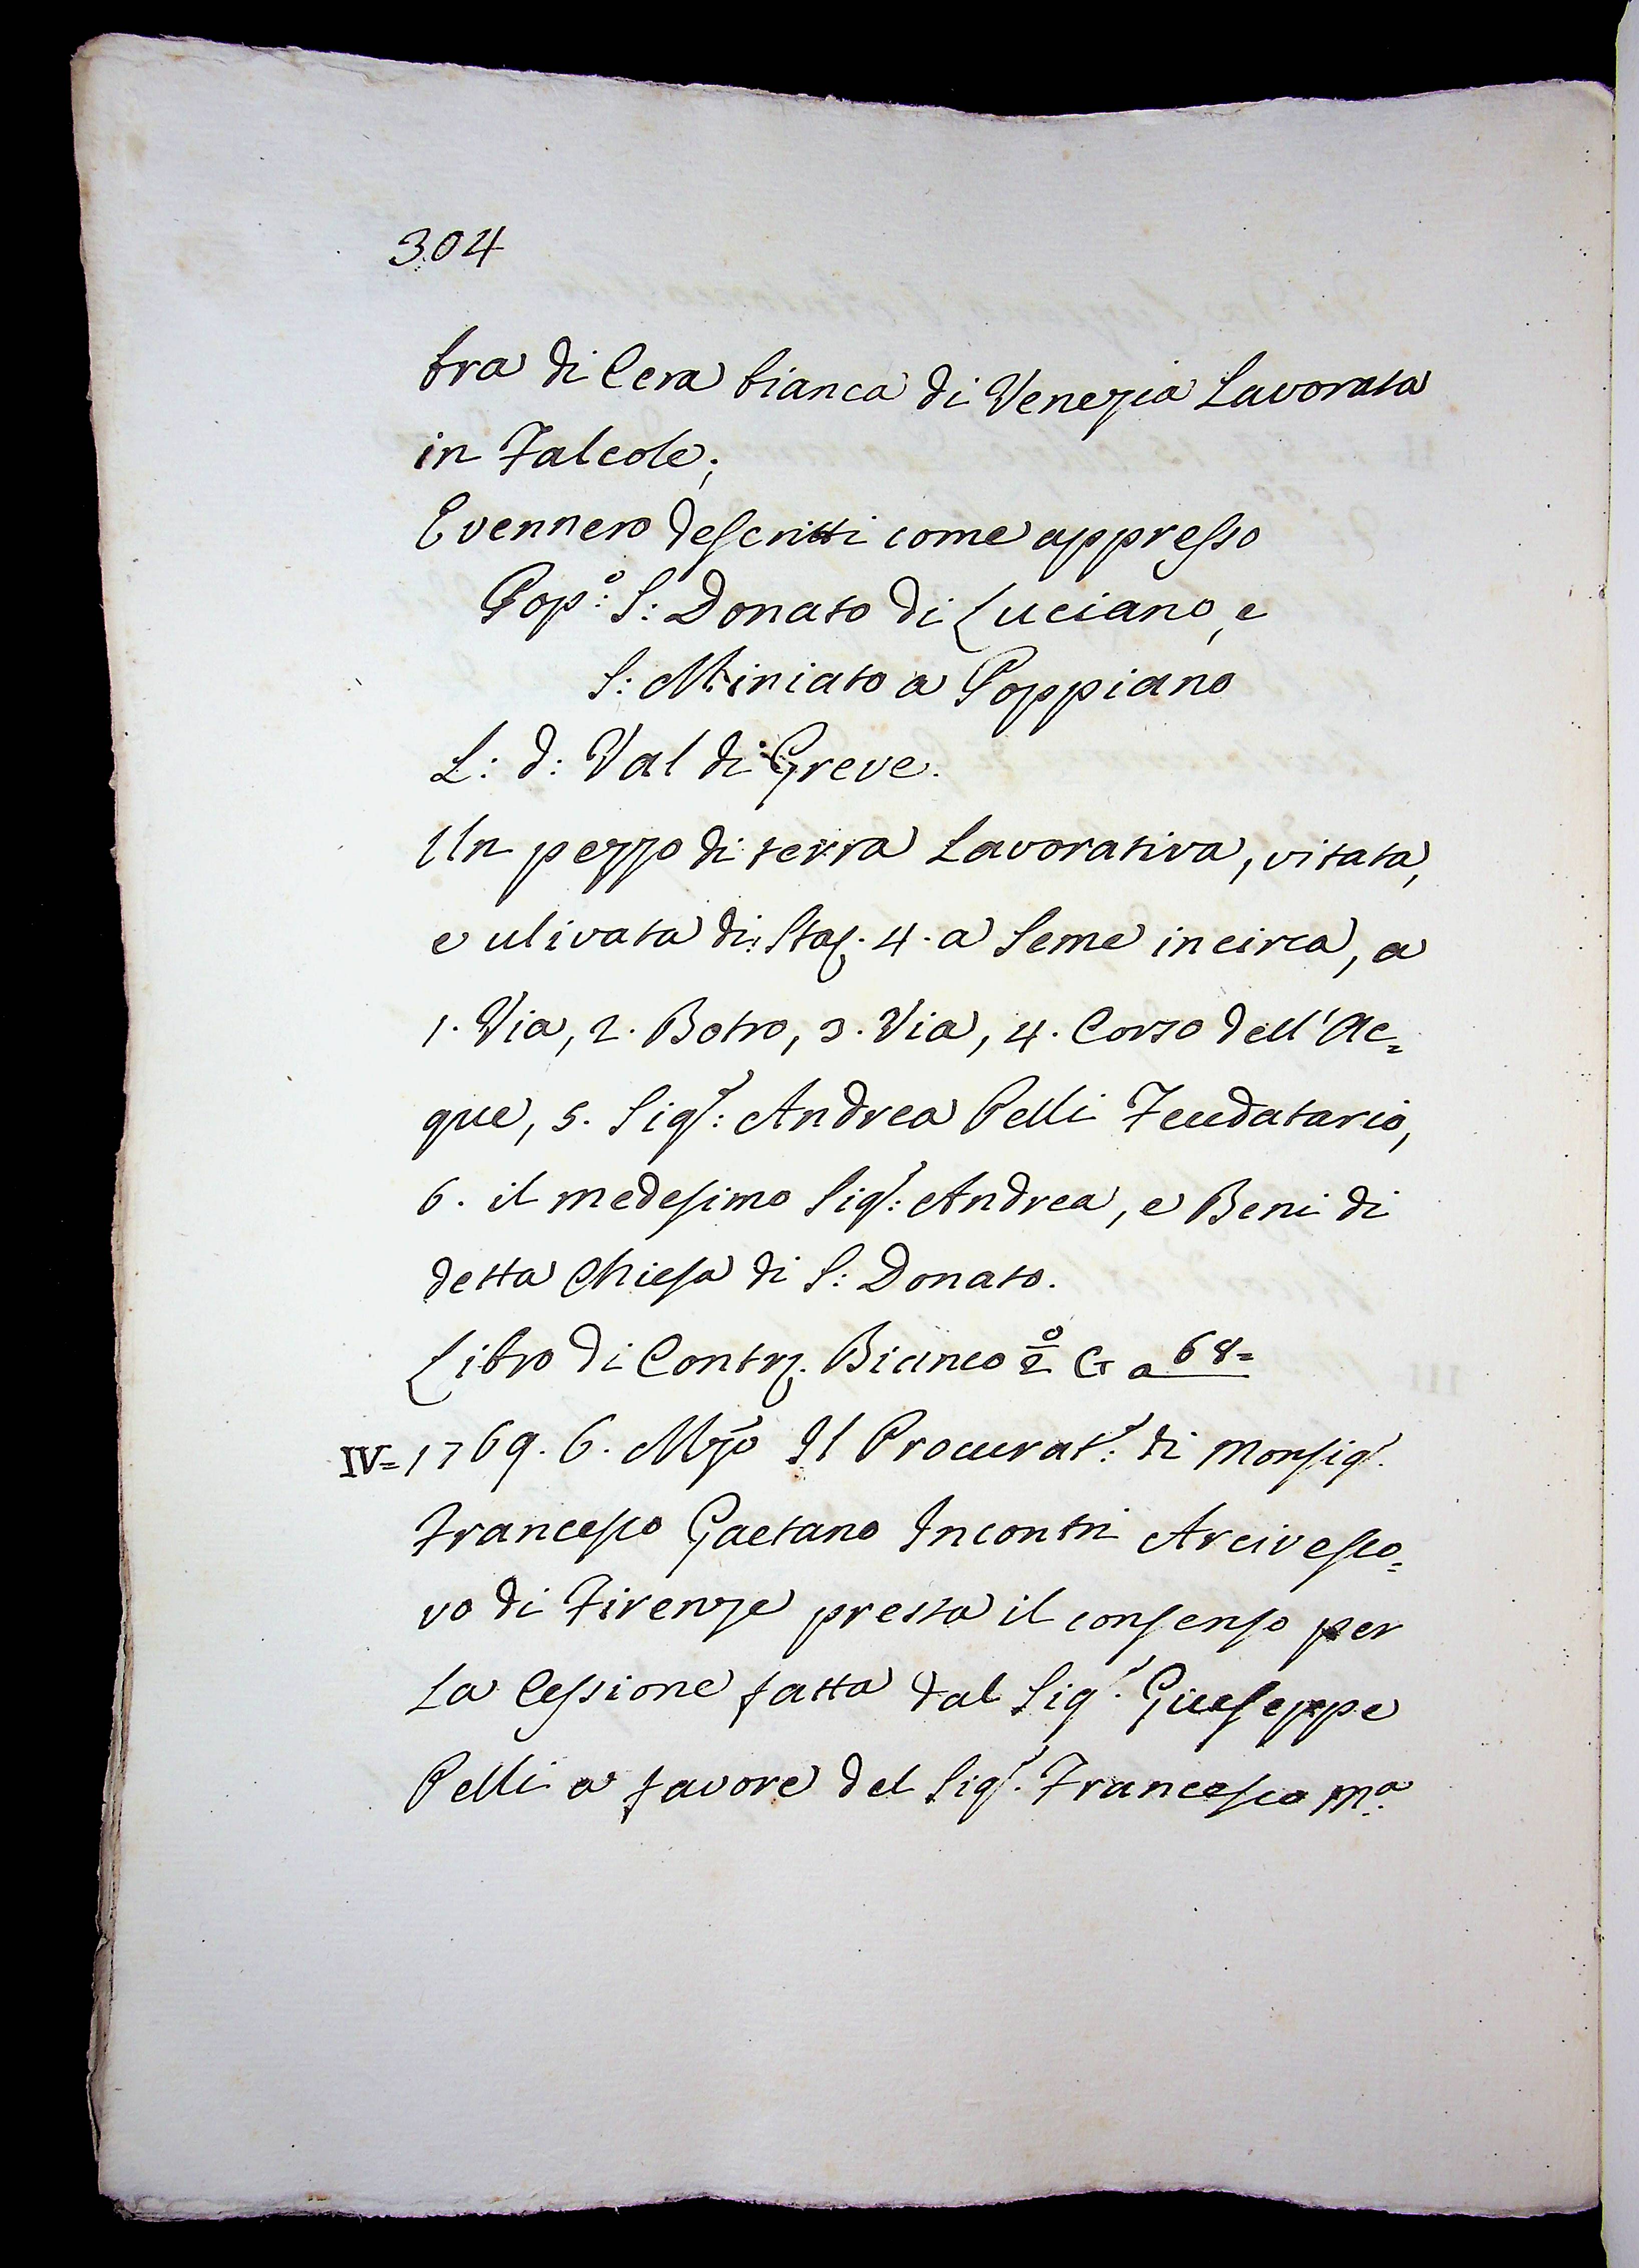 304
bra di Cera bianca di Venezia Lavorata
in Falcole;
E vennero descritti come appresso
Pop.º: S: Donato di Luciano, e
S: Miniato a Poppiano
L: d: Val di Greve.
Un pezzo di terra Lavorativa, vitata,
e ulivata di Sta. 4. a Seme incirca, a
1. Via, 2. Botro, 3. Via, 4. Corso dell'Ac=
que, 5. Sigr: Andrea Pelli Feudatario,
6. il medesimo Sigr: Andrea, e Beni di
detta Chiesa di S: Donato.
Libro di Contr. Bianco G a 68=
IV= 1769. 6. Mzo Il Procurat.r: di Monsigr.
Francesco Gaetano Incontri Arcivesco=
vo di Firenze presta il consenso per
La Cessione fatta dal Sigr. Giuseppe
Pelli a favore del Sigr. Francesco Ma: